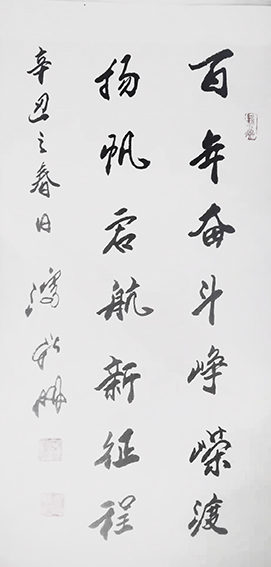 百年奋斗峥嵘渡
扬帆启航新征程
辛丑之春日